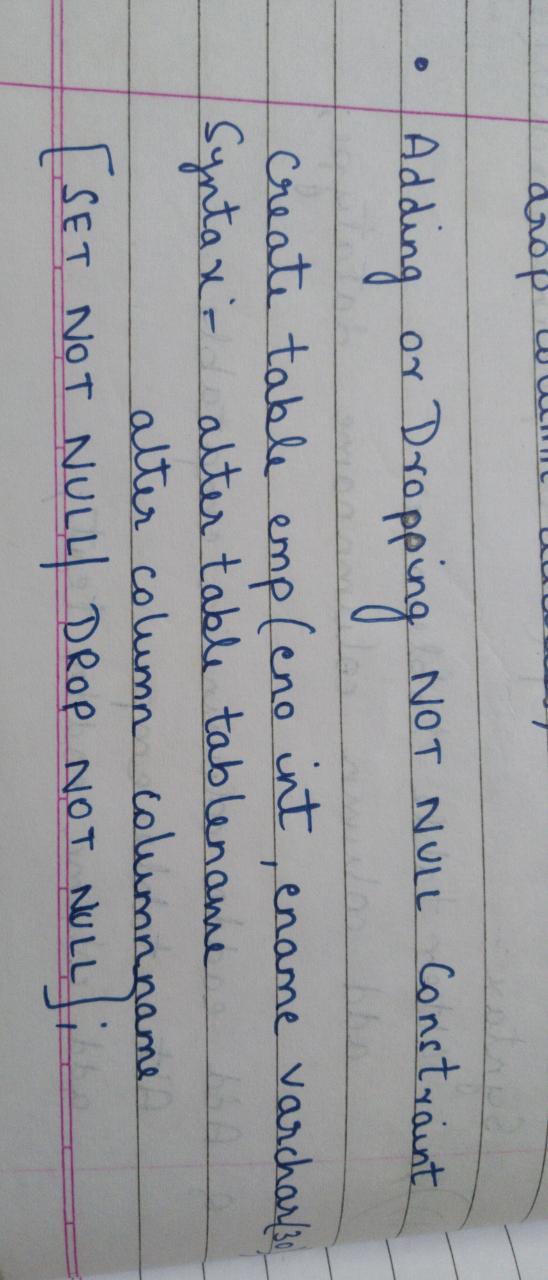 drop column
• Adding or Dropping NOT NULL Constraint
Create table emp(eno int, ename varchar(30)
Syntax:- alter table tablename
alter column columnname
[SET NOT NULL| DROP NOT NULL];